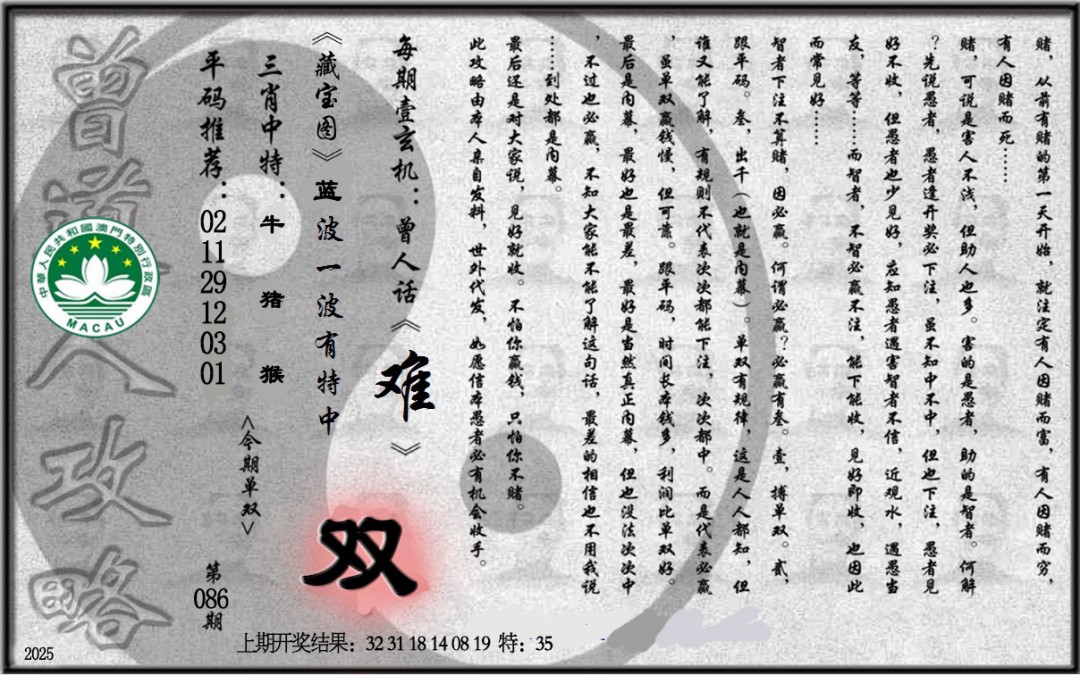 赌，从前有赌的第一天开始，就注定有人因赌而富，有人因赌而穷，
有人因赌而死……
赌，可说是害人不浅，但助人也多。害的是愚者，助的是智者。何解
？先说愚者，愚者逢开奖必下注，虽不知中不中，但也下注，愚者见
好不收，但愚者也少见好，应知愚者遇害智者不信，近观水，遇愚当
友，等等……而智者，不智必赢不注，能下能收，见好即收，也因此
而常见好……
智者下注不算赌，因必赢。何谓必赢？必赢有叁。壹，搏单双。贰，
跟平码。叁，出千（也就是内幕）。单双有规律，这是人人都知，但
谁又能了解，有规则不代表次次都能下注，次次都中。而是代表必赢
，虽单双赢钱慢，但可靠。跟平码，时间长本钱多，利润比单双好。
最后是内幕，最好也是最差，最好是当然真正内幕，但也没法次次中
，不过也必赢，不知大家能不能了解这句话，最差的相信也不用我说
……到处都是内幕。
最后还是对大家说，见好就收。不怕你赢钱，只怕你不赌。
此攻略由本人亲自发料，世外代发，如愿信本愚者必有机会收手。
每期壹玄机：曾人话《难》
《藏宝图》蓝波一波有特中
三肖中特：牛 猪 猴
平码推荐：02 11 29 12 03 01
<今期单双>
双
第086期
曾道人攻略
中華人民共和國澳門特別行政區
MACAU
上期开奖结果：32 31 18 14 08 19 特：35
2025